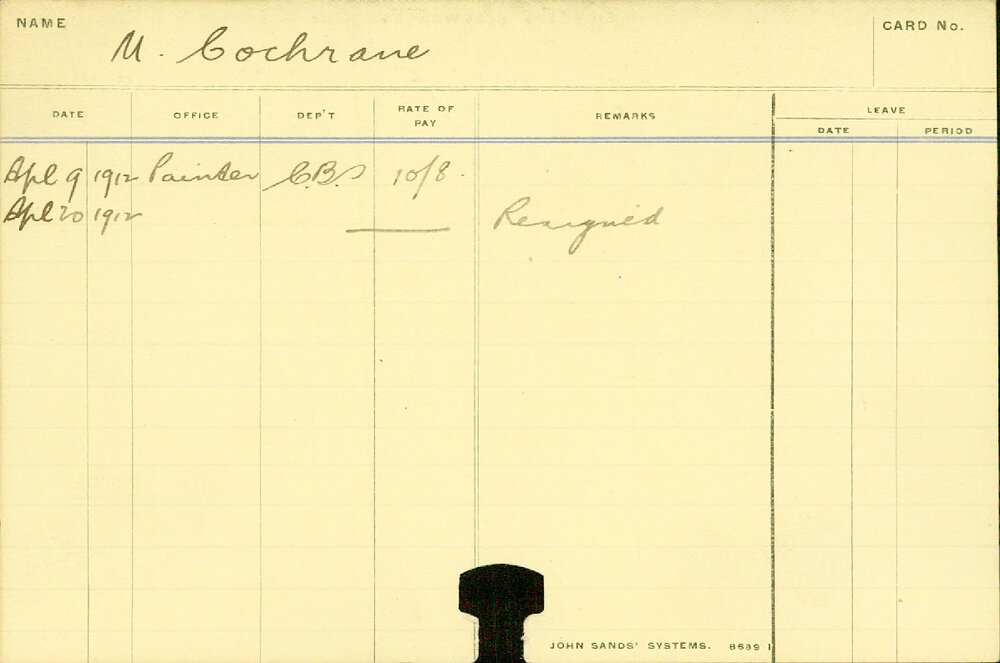 NAME
M. Cochrane
CARD No.
DATE OFFICE DEP'T RATE OF PAY REMARKS LEAVE
DATE PERIOD
Apl 9 1912 Painter C.B.S 10/8.
Apl 20 1912 Resigned
JOHN SANDS' SYSTEMS. 8689